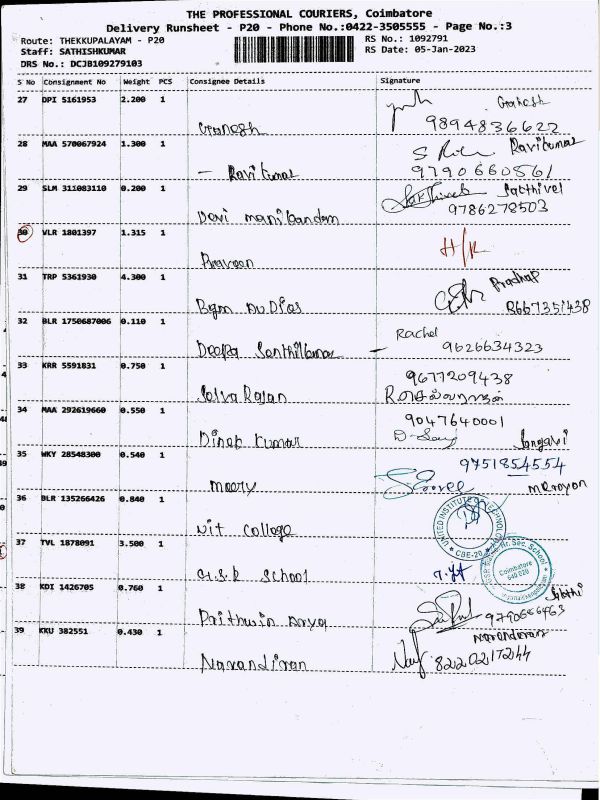 THE PROFESSIONAL COURIERS, Coimbatore
Delivery Runsheet - P20 - Phone No.:0422-3505555 - Page No.:3
Route: THEKKUPALAYAM - P20
RS No.: 1092791
Staff: SATHISHKUMAR
RS Date: 05-Jan-2023
DRS No.: DCJB109279103
S No Consignment No Weight PCS Consignee Details Signature
27 DPI 5161953 2.200 1
Ganesh
Ganesh
9894836622
28 MAA 570067924 1.300 1
- Ravi kumar
Ravikumar
9790660561
29 SLM 311083110 0.200 1
Devi manikandam
Sacthivel
9786278503
30 VLR 1801397 1.315 1
Praveen
H/R
31 TRP 5361930 4.300 1
Pradhap
8667351438
32 BLR 1750687006 0.110 1
Deepa Senthilkumar
Rachel
9626634323
33 KRR 5591831 0.750 1
Selva Rajan
9677209438
34 MAA 292619660 0.550 1
Dinesh kumar
9047640001
Sangavi
35 WKY 28548300 0.540 1
meery
9751854554
36 BLR 135266426 0.840 1
nit college
UNITED INSTITUTE OF TECHNOLOGY
CBE-20
37 TVL 1878091 3.500 1
school
Hr. Sec. School
Coimbatore
641 020
38 KDI 1426705 0.760 1
Prithwin Arya
9790666463
39 KKU 382551 0.430 1
Narandiran
Narendiran
8220217244